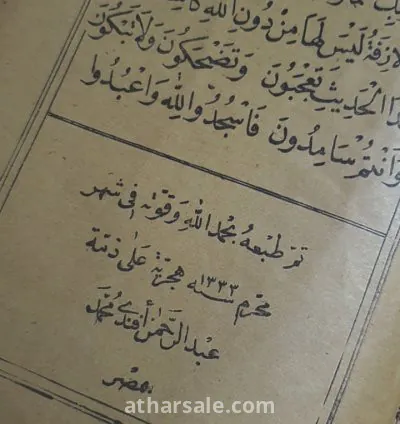 لَيْسَ لَهَا مِنْ دُونِ اللهِ
الْحَدِيثِ تَعْجَبُونَ وَتَضْحَكُونَ وَلَا تَبْكُونَ
وَاَنْتُمْ سَامِدُونَ فَاسْجُدُوا لِلّٰهِ وَاعْبُدُوا
تم طبعه بحمد الله وقوته فى شهر
محرم سنه ١٣٣٣ هجرية على ذمة
عبد الرحمن أفندى محمد
بمصر
atharsale.com